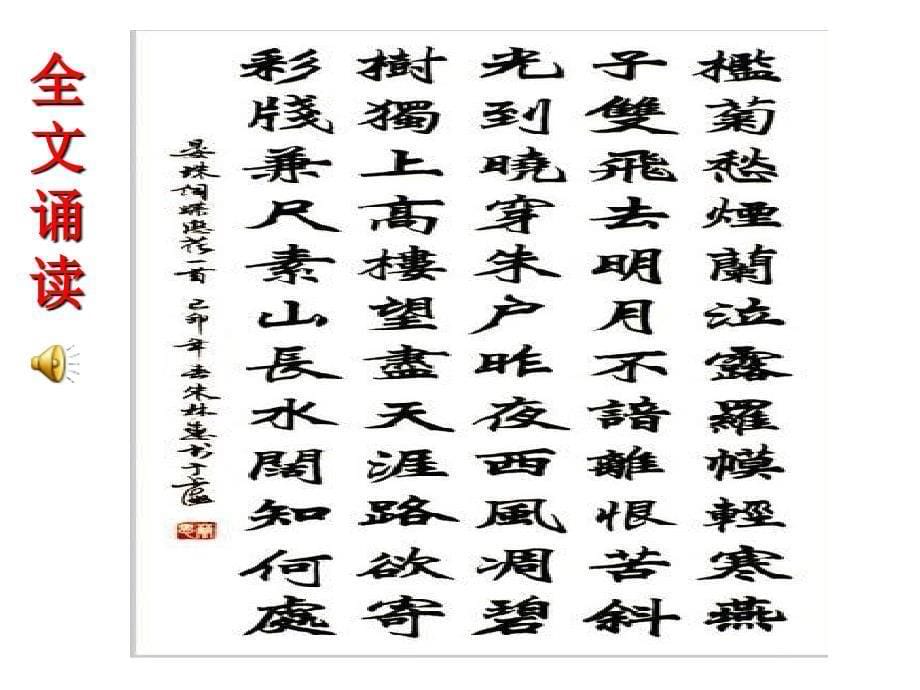 全文诵读
檻菊愁煙蘭泣露羅幙輕寒燕
子雙飛去明月不諳離恨苦斜
光到曉穿朱户昨夜西風凋碧
樹獨上高樓望盡天涯路欲寄
彩牋兼尺素山長水闊知何處
晏珠詞蝶恋花一首 己卯年